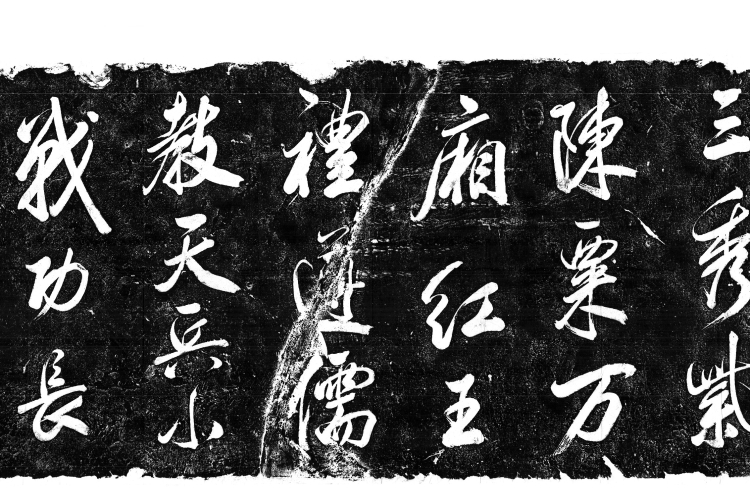 三秀紫
陳粟万
廂紅王
禮儒
教天兵小
戰功長